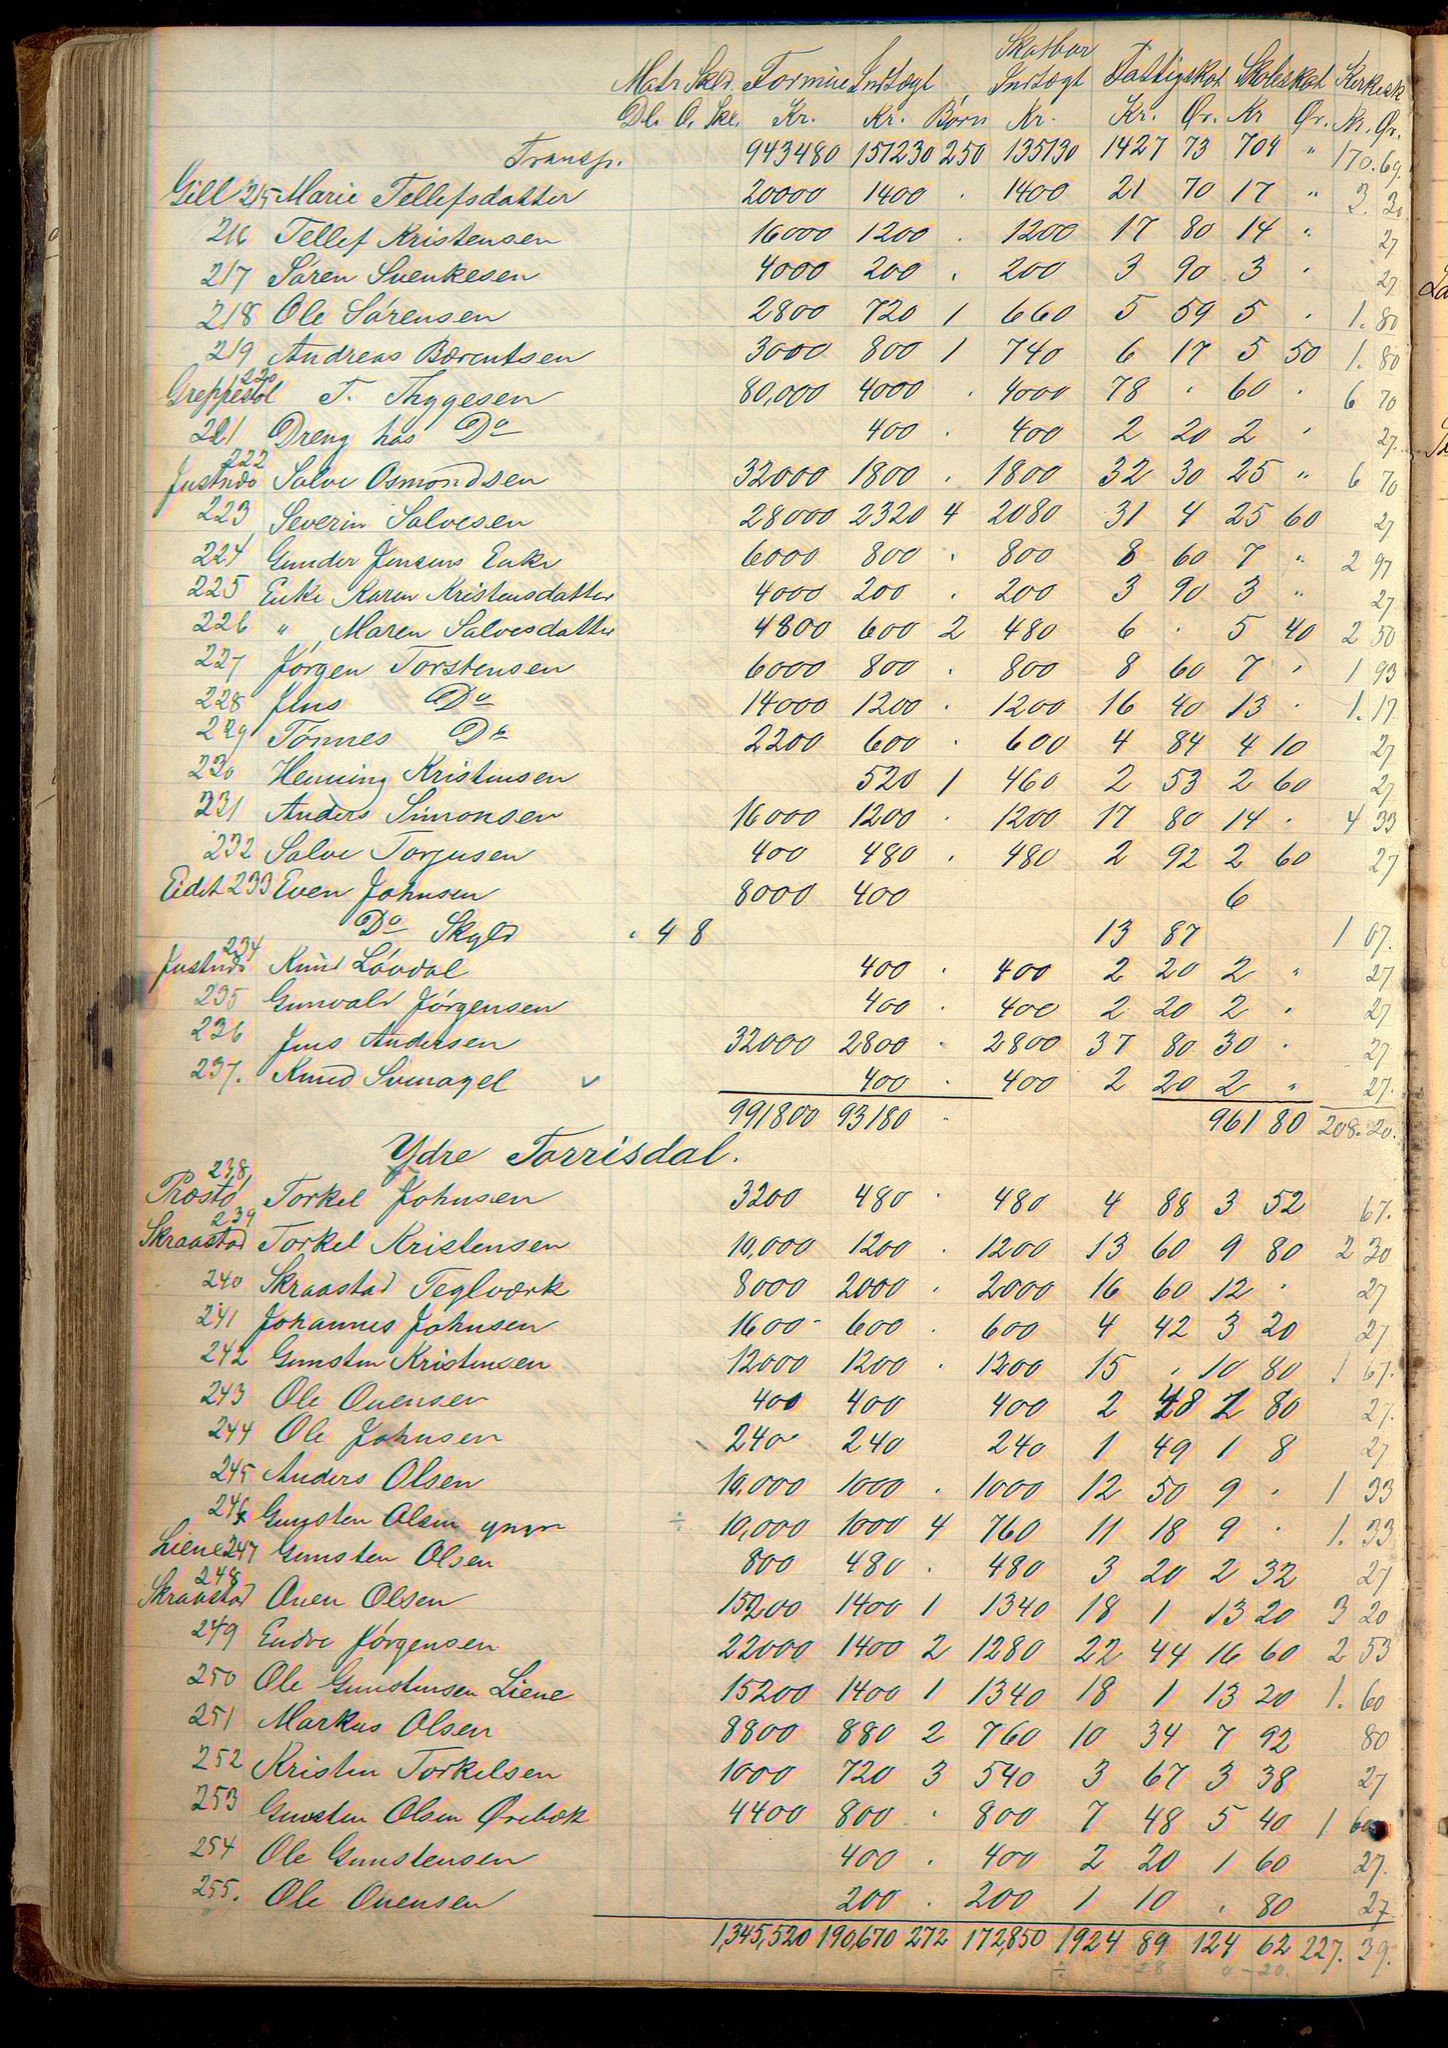 Matr Skld. Formue Indtægt Skatbar Indtægt Fattigskat Skoleskat Kirkesk
Dl. O. Skl. Kr. Kr. Børn Kr. Kr. Ør. Kr Ør. Kr. Ør.
Transp. 943480 157230 250 135130 1427 73 709 " 170.69
Gill 215 Marie Tellefsdatter 20000 1400 . 1400 21 70 17 " 3. 30
216 Tellef Kristensen 16000 1200 . 1200 17 80 14 " 27
217 Søren Svenkesen 4000 200 . 200 3 90 3 . 27
218 Ole Sørensen 2800 720 1 660 5 59 5 . 1.80
219 Andreas Bærentsen 3000 800 1 740 6 17 5 50 1.80
Greppestøl 220 T. Thygesen 80,000 4000 . 4000 78 . 60 . 6 70
221 Dreng hos Do 400 . 400 2 20 2 . 27.
Justnæs 222 Salve Osmondsen 32000 1800 . 1800 32 30 25 " 6 70
223 Severin Salvesen 28000 2320 4 2080 31 4 25 60 27
224 Gunder Jensens Enke 6000 800 . 800 8 60 7 " 2 97
225 Enke Karen Kristensdatter 4000 200 . 200 3 90 3 " 27
226 " Maren Salvesdatter 4800 600 2 480 6 . 5 40 2 50
227 Jørgen Torstensen 6000 800 . 800 8 60 7 . 1 93
228 Jens Do 14000 1200 . 1200 16 40 13 . 1.17
229 Tønnes Do 2200 600 . 600 4 84 4 10 27
230 Henning Kristensen 520 1 460 2 53 2 60 27
231 Anders Simonsen 16000 1200 . 1200 17 80 14 . 4 33
232 Salve Torjusen 400 480 . 480 2 92 2 60 27
Eidet 233 Even Johnsen 8000 400 6
Do Skyld . 4 8 13 87 1 07.
Justnæs 234 Knud Løvdal 400 . 400 2 20 2 " 27
235 Gunvald Jørgensen 400 . 400 2 20 2 . 27
236 Jens Andersen 32000 2800 . 2800 37 80 30 . 27
237. Knud Svenagel 400 . 400 2 20 2 " 27.
991800 93180 . 961 80 208.20.
Ydre Torrisdal.
Præstø 238 Torkel Johnsen 3200 480 . 480 4 88 3 52 67.
Skraastad 239 Torkel Kristensen 10,000 1200 . 1200 13 60 9 80 2 30
240 Skraastad Teglværk 8000 2000 . 2000 16 60 12 . 27
241 Johannes Johnsen 1600 600 . 600 4 42 3 20 27
242 Gunsten Kristensen 12000 1200 . 1200 15 . 10 80 1 67.
243 Ole Ouensen 400 400 400 2 48 1 80 27.
244 Ole Johnsen 240 240 240 1 49 1 8 27
245 Anders Olsen 10,000 1000 . 1000 12 50 9 . 1 33
246 Gunsten Olsen yngre ÷ 10,000 1000 4 760 11 18 9 . 1.33
Liene 247 Gunsten Olsen 800 480 . 480 3 20 2 32 27
Skraastad 248 Ouen Olsen 15200 1400 1 1340 18 1 13 20 3 20
249 Endre Jørgensen 22000 1400 2 1280 22 44 16 60 2 53
250 Ole Gunstensen Liene 15200 1400 1 1340 18 1 13 20 1.60
251 Markus Olsen 8800 880 2 760 10 34 7 92 80
252 Kristen Torkelsen 1000 720 3 540 3 67 3 38 27
253 Gunsten Olsen Ørebæk 4400 800 . 800 7 48 5 40 1 60
254 Ole Gunstensen 400 . 400 2 20 1 60 27.
255. Ole Ouensen 200 . 200 1 10 . 80 27.
1,345,520 190,670 272 172,850 1924 89 124 62 227.39.